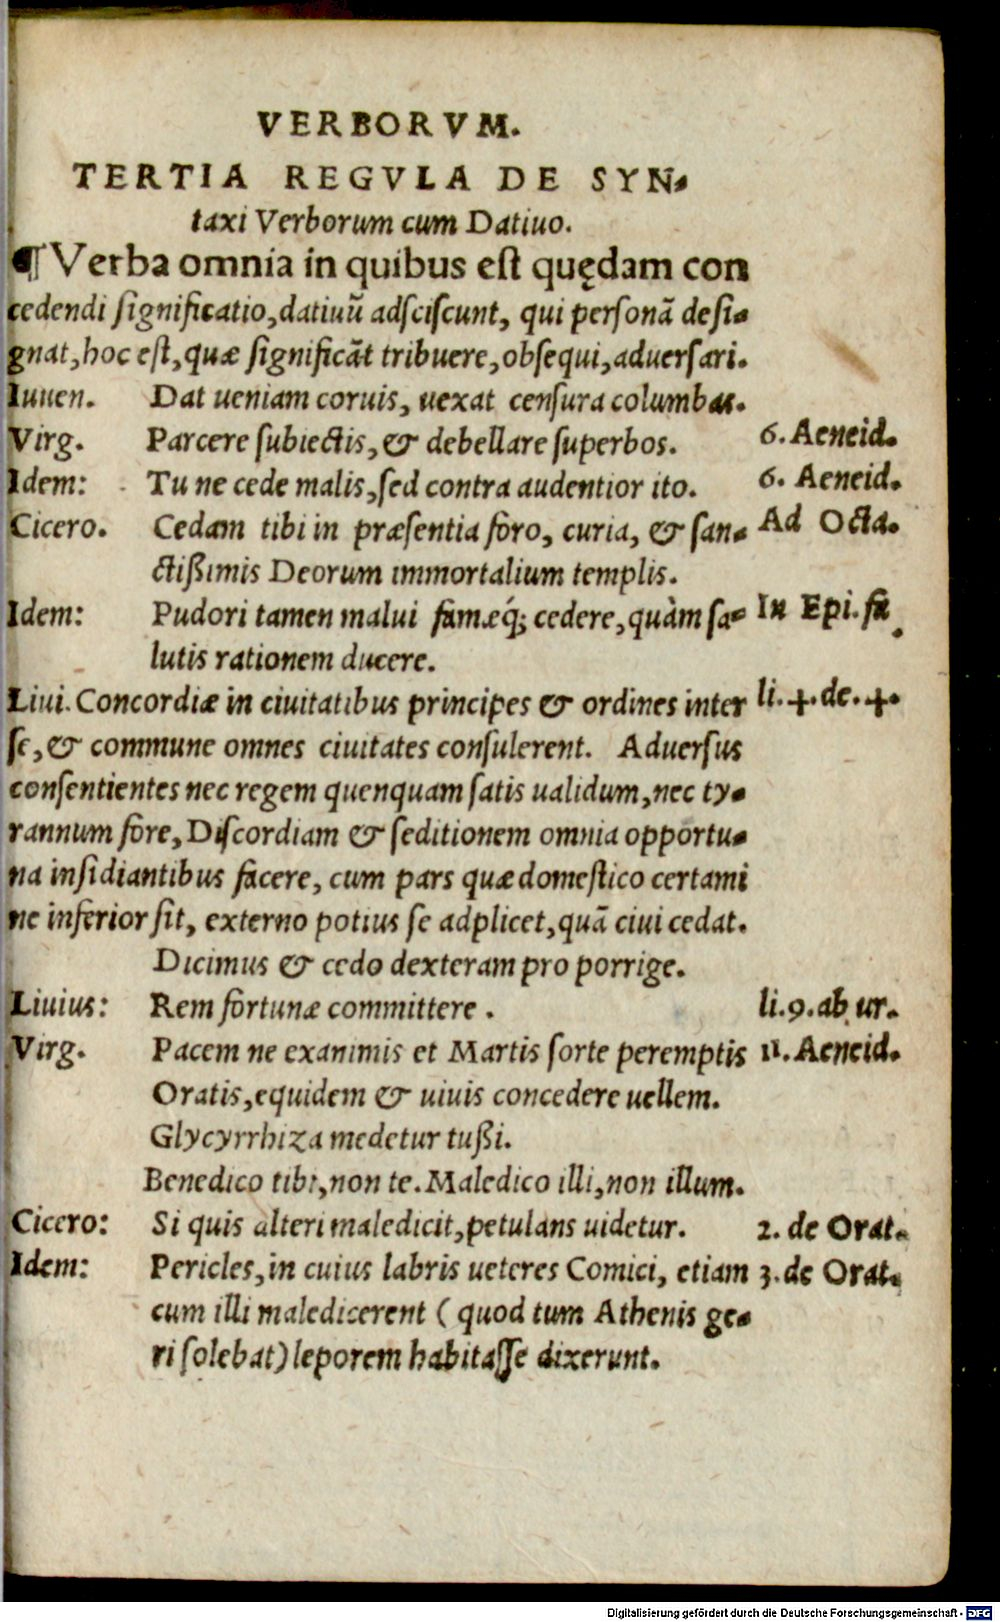 VERBORVM.
TERTIA REGVLA DE SYN-
taxi Verborum cum Datiuo.
¶ Verba omnia in quibus est quędam con
cedendi significatio, datiuũ adsciscunt, qui personã desi-
gnat, hoc est, quæ significãt tribuere, obsequi, aduersari.
Iuuen. Dat ueniam coruis, uexat censura columbas.
Virg. Parcere subiectis, & debellare superbos. 6. Aeneid.
Idem: Tu ne cede malis, sed contra audentior ito. 6. Aeneid.
Cicero. Cedam tibi in præsentia foro, curia, & san- Ad Octa.
ctißimis Deorum immortalium templis.
Idem: Pudori tamen malui famæq́; cedere, quàm sa- In Epi. fa
lutis rationem ducere.
Liui. Concordiæ in ciuitatibus principes & ordines inter li. 4. de. 4.
se, & commune omnes ciuitates consulerent. Aduersus
consentientes nec regem quenquam satis ualidum, nec ty-
rannum fore, Discordiam & seditionem omnia opportu-
na insidiantibus facere, cum pars quæ domestico certami
ne inferior sit, externo potius se adplicet, quã ciui cedat.
Dicimus & cedo dexteram pro porrige.
Liuius: Rem fortunæ committere. li. 9. ab ur.
Virg. Pacem ne exanimis et Martis sorte peremptis 11. Aeneid.
Oratis, equidem & uiuis concedere uellem.
Glycyrrhiza medetur tußi.
Benedico tibi, non te. Maledico illi, non illum.
Cicero: Si quis alteri maledicit, petulans uidetur. 2. de Orat.
Idem: Pericles, in cuius labris ueteres Comici, etiam 3. de Orat.
cum illi maledicerent (quod tum Athenis ge-
ri solebat) leporem habitasse dixerunt.
Digitalisierung gefördert durch die Deutsche Forschungsgemeinschaft - DFG